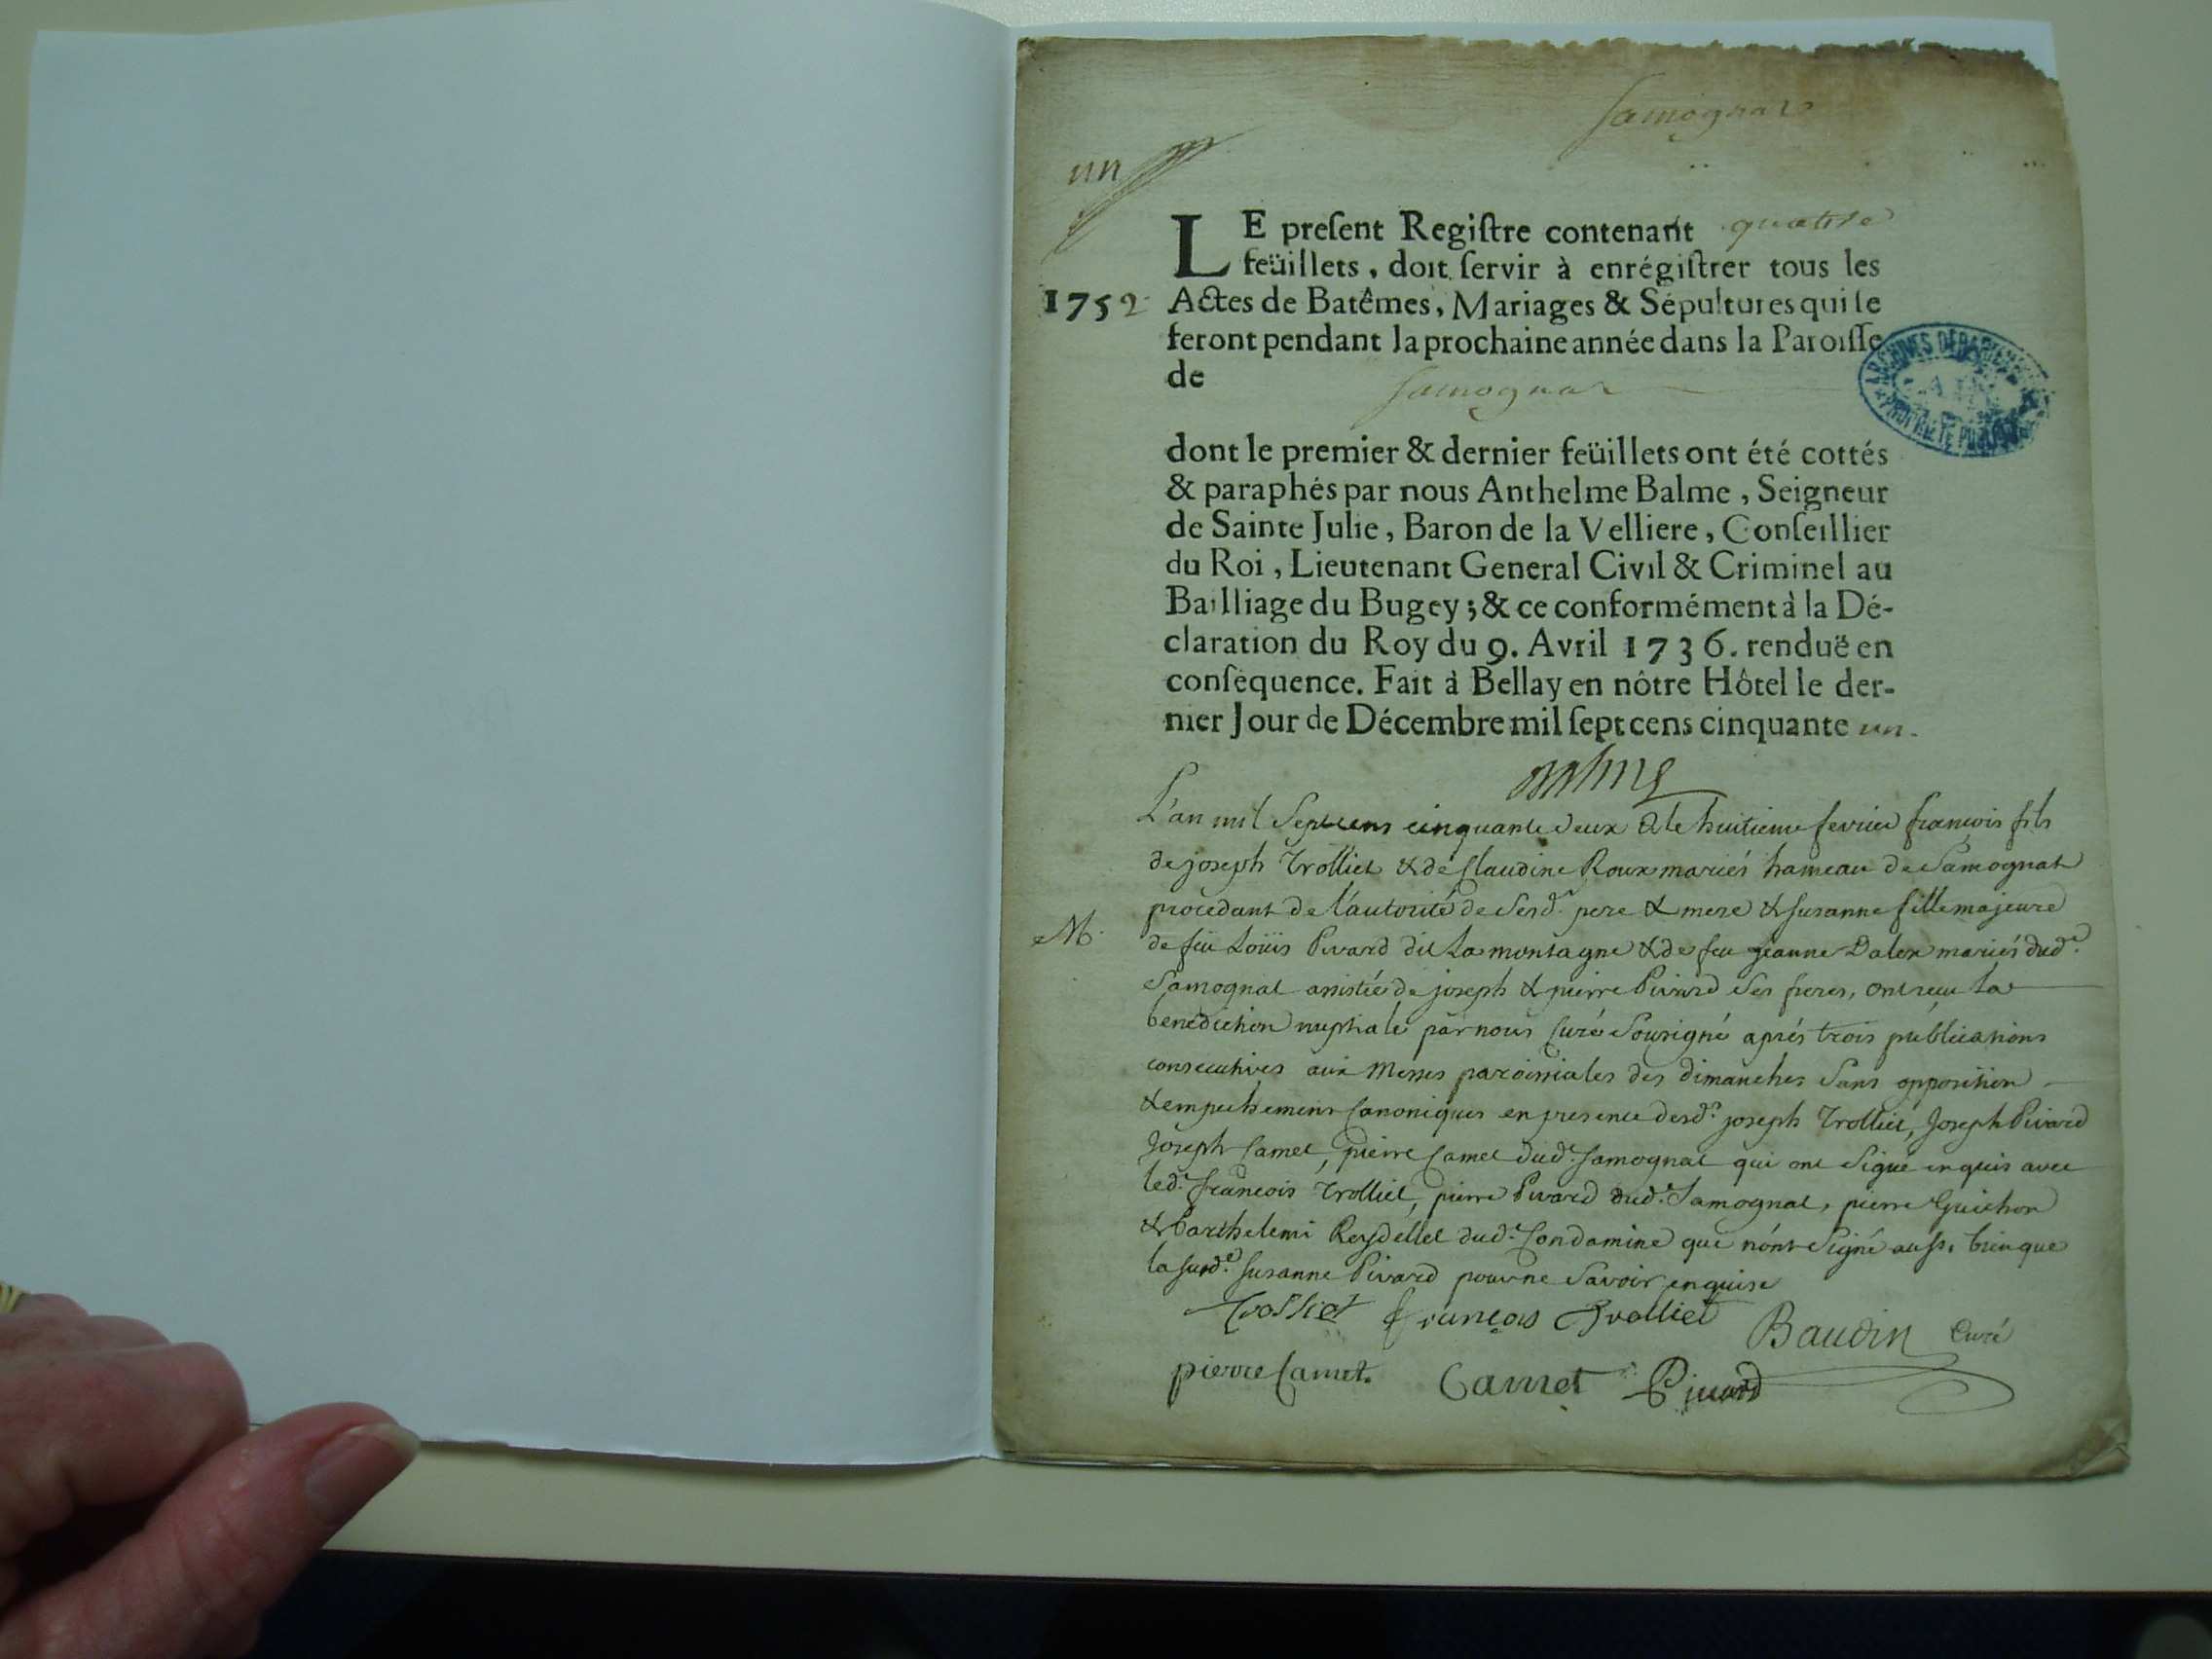 Samognat
un
LE preſent Regiſtre contenant quatre
feüillets, doit ſervir à enrégiſtrer tous les
1752 Actes de Batêmes, Mariages & Sépultures qui ſe
feront pendant la prochaine année dans la Paroiſſe
de Samognat
ARCHIVES DÉPARTEMENTALES
AIN
PROPRIÉTÉ PUBLIQUE
dont le premier & dernier feüillets ont été cottés
& paraphés par nous Anthelme Balme, Seigneur
de Sainte Julie, Baron de la Velliere, Conſeillier
du Roi, Lieutenant General Civil & Criminel au
Bailliage du Bugey; & ce conformément à la Dé-
claration du Roy du 9. Avril 1736. renduë en
conſéquence. Fait à Bellay en nôtre Hôtel le der-
nier Jour de Décembre mil ſept cens cinquante un.
Balme
L'an mil Sept cens cinquante deux & le huitieme fevrier françois fils
de joseph Trolliet & de Claudine Roux mariés hameau de Samognat
procedant de l'autorité de Sesd. pere & mere & susanne fille majeure
M. de feu Loüis Pivard dit La montagne & de feu jeanne Dalex mariés dud.
Samognat assistée de joseph & pierre Pivard Ses freres, ont reçu La
benediction nuptiale par nous Curé Sousigné aprés trois publications
consecutives aux Messes paroissiales des dimanches Sans opposition
& empechemens Canoniques en presence desd. joseph Trolliet, Joseph Pivard
Joseph Camet, pierre Camet dud. Samognat qui ont Signé enquis avec
led. françois Trolliet, pierre Pivard dud. Samognat, pierre Guichon
& Barthelemi Reydellet dud. Condamine qui n'ont Signé aussi bien que
la susd. susanne Pivard pour ne Savoir enquise
Trolliet françois Trolliet Baudin Curé
pierre Camet. Camet Pivard